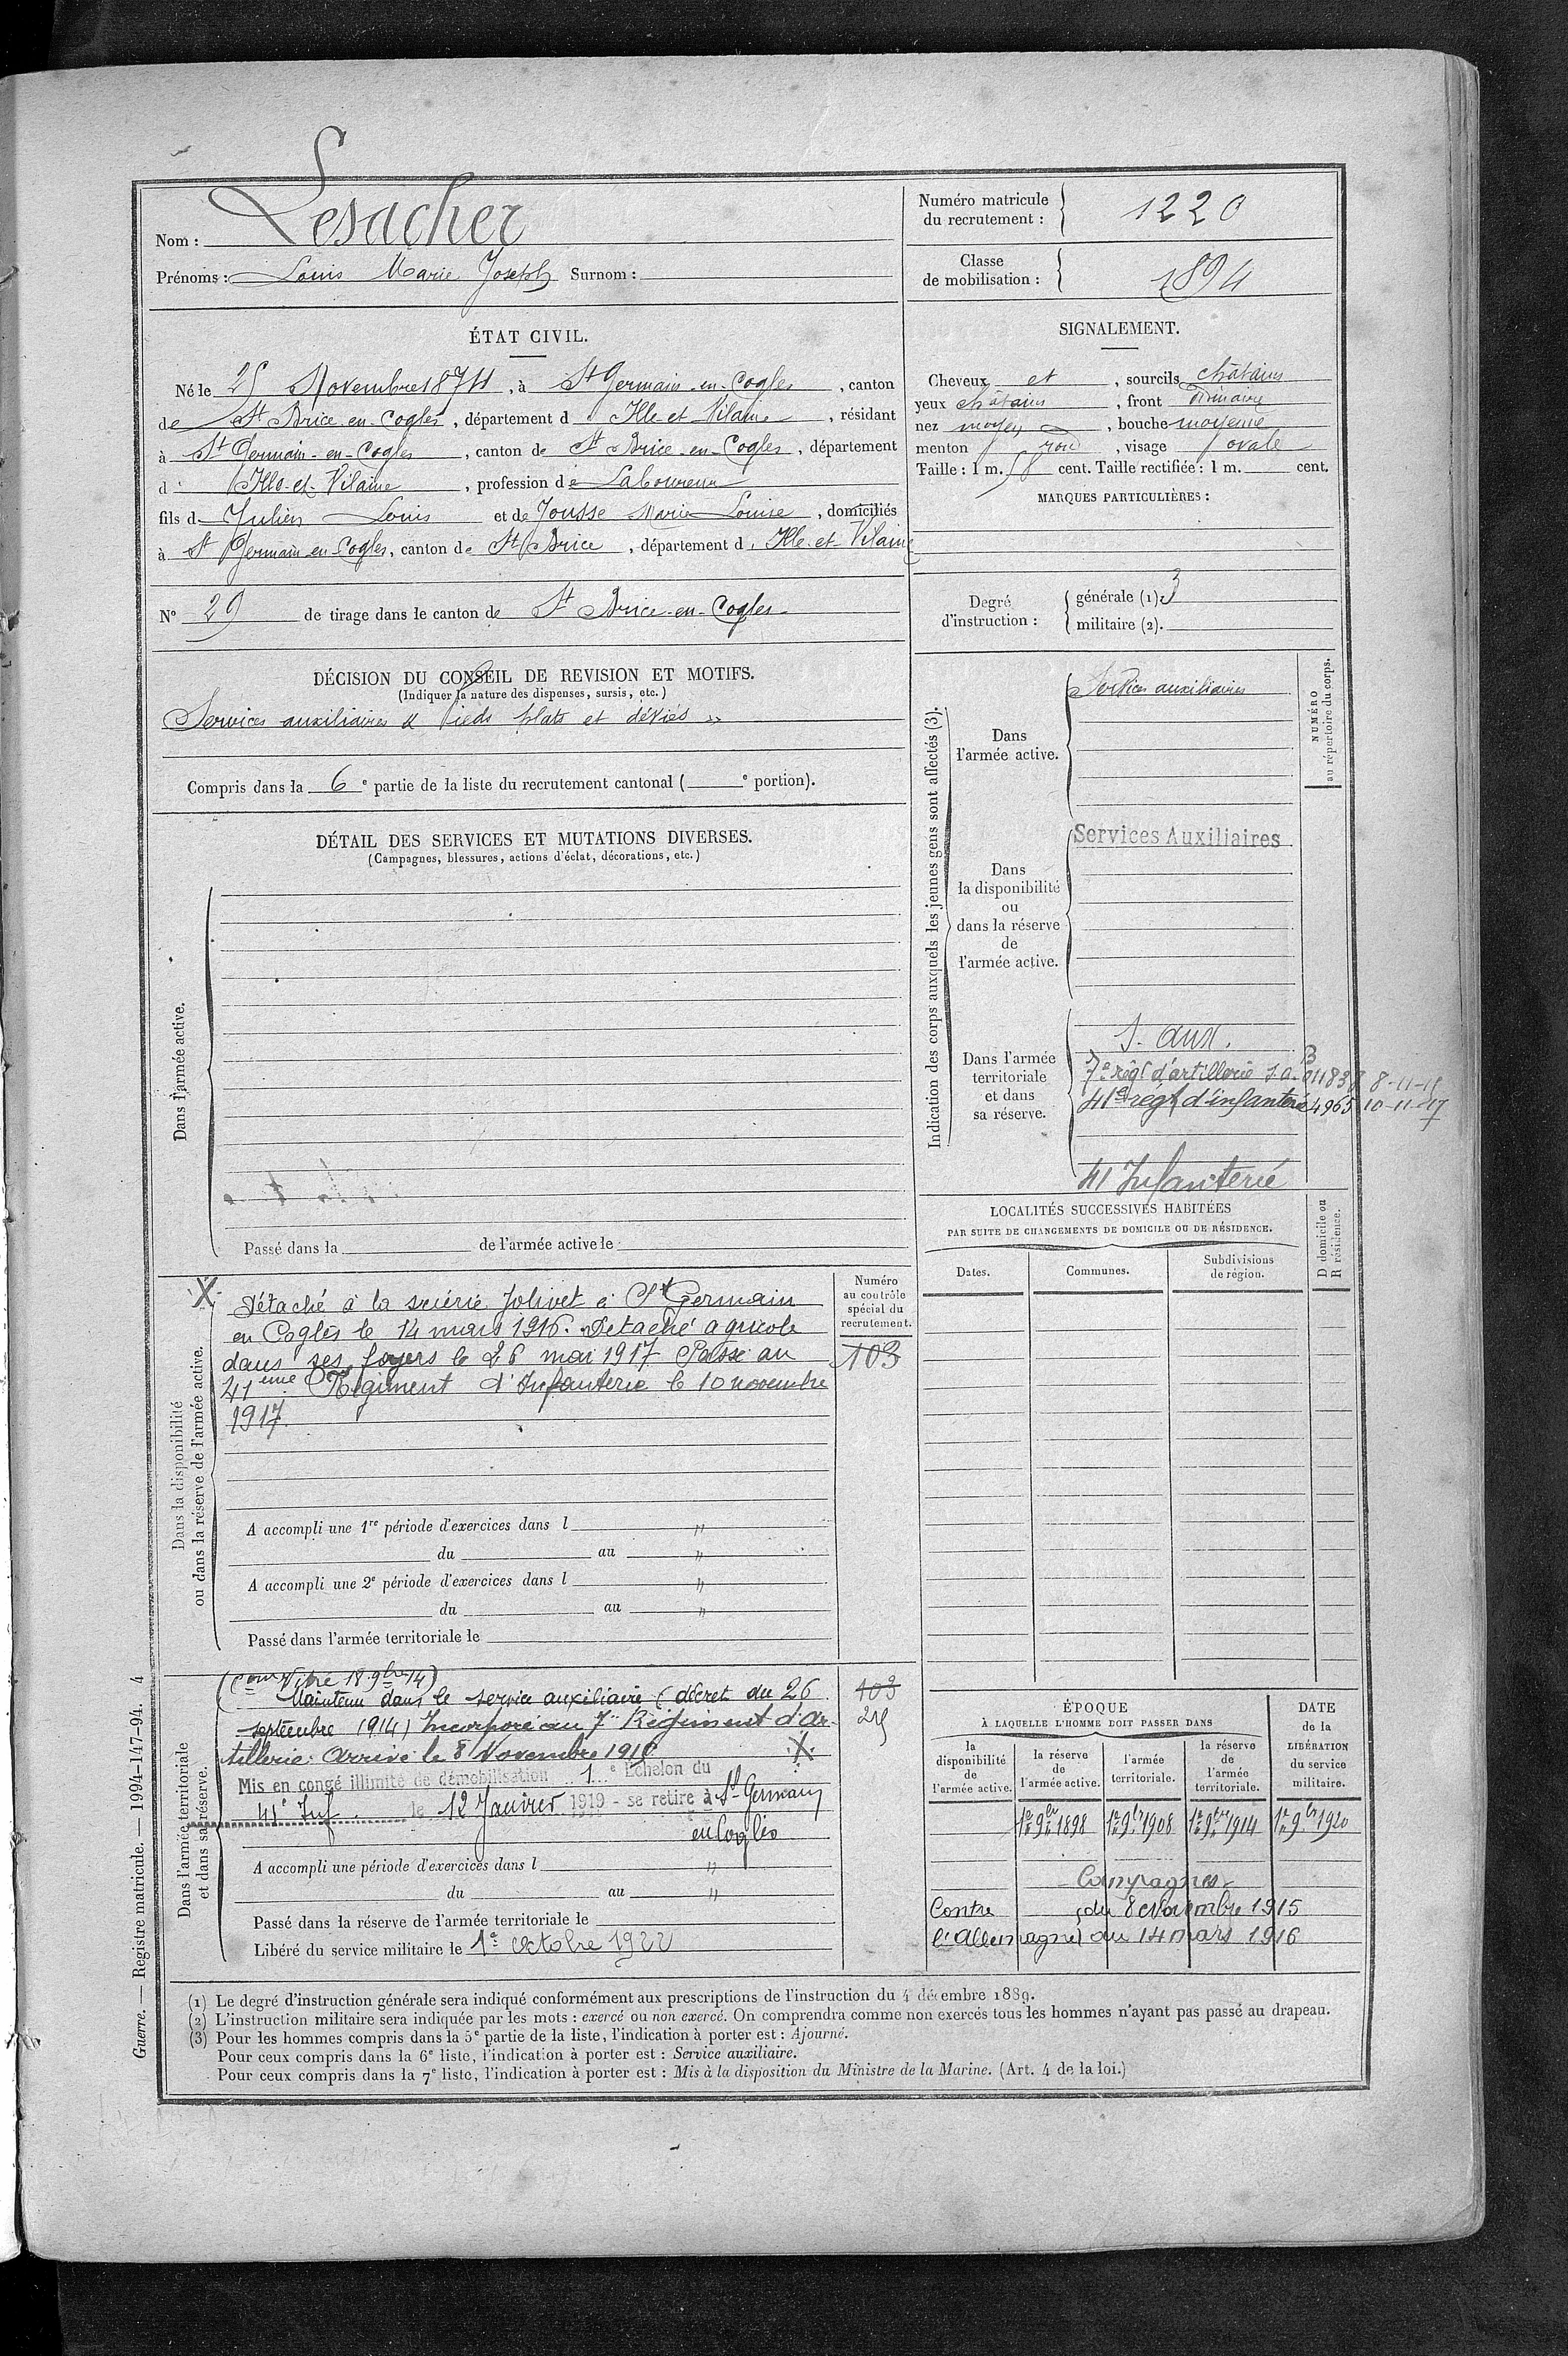 Nom : Lesacher
Prénoms : Louis Marie Joseph Surnom :
Numéro matricule du recrutement : 1220
Classe de mobilisation : 1894
ÉTAT CIVIL.
Né le 25 Novembre 1874, à St Germain-en-Cogles, canton
de St Brice-en-Cogles, département d'Ille-et-Vilaine, résidant
à St Germain-en-Cogles, canton de St Brice-en-Cogles, département
d' Ille-et-Vilaine, profession de Laboureur
fils d Julien Louis et de Jousse Marie Louise, domiciliés
à St Germain-en-Cogles, canton de St Brice, département d. Ille-et-Vilaine
N° 29 de tirage dans le canton de St Brice-en-Cogles
SIGNALEMENT.
Cheveux et, sourcils châtains
yeux châtains, front
nez moyen, bouche moyenne
menton rond, visage ovale
Taille : 1 m. 58 cent. Taille rectifiée : 1 m. cent.
MARQUES PARTICULIÈRES :
Degré d'instruction : générale (1). 3
militaire (2).
DÉCISION DU CONSEIL DE REVISION ET MOTIFS.
(Indiquer la nature des dispenses, sursis, etc.)
Services auxiliaires « Pieds plats et déviés »
Compris dans la 6e partie de la liste du recrutement cantonal ( e portion).
DÉTAIL DES SERVICES ET MUTATIONS DIVERSES.
(Campagnes, blessures, actions d'éclat, décorations, etc.)
Dans l'armée active.
Passé dans la de l'armée active le
Indication des corps auxquels les jeunes gens sont affectés (3).
NUMÉRO au répertoire du corps.
Dans l'armée active.
Services auxiliaires
Dans la disponibilité ou dans la réserve de l'armée active.
Services Auxiliaires
Dans l'armée territoriale et dans sa réserve.
S. aux.
7e régt d'artillerie s.a. B 011838 8-11-15
41e régt d'infanterie 4965 10-11-17
41 Infanterie
LOCALITÉS SUCCESSIVES HABITÉES
PAR SUITE DE CHANGEMENTS DE DOMICILE OU DE RÉSIDENCE.
Dates.
Communes.
Subdivisions de région.
D domicile ou R résidence.
Dans la disponibilité ou dans la réserve de l'armée active.
Numéro au contrôle spécial du recrutement.
103
X Détaché à la scierie Jolivet à St Germain
en Cogles le 14 mars 1916. Détaché agricole
dans ses foyers le 26 mai 1917 Passé au
41eme Régiment d'Infanterie le 10 novembre
1917.
A accompli une 1re période d'exercices dans l "
du au "
A accompli une 2e période d'exercices dans l "
du au "
Passé dans l'armée territoriale le
Dans l'armée territoriale et dans sa réserve.
(Com Vitré 18 9bre 14)
Maintenu dans le service auxiliaire (décret du 26
septembre 1914) Incorporé au 7e Régiment d'Ar-
tillerie. Arrivé le 8 Novembre 1915 X
103
Mis en congé illimité de démobilisation 1e Echelon du
41e Inf. le 12 Janvier 1919 - se retire à St Germain
en Cogles
A accompli une période d'exercices dans l "
du au "
Passé dans la réserve de l'armée territoriale le
Libéré du service militaire le 1er octobre 1922
ÉPOQUE
À LAQUELLE L'HOMME DOIT PASSER DANS
la disponibilité de l'armée active.
la réserve de l'armée active.
l'armée territoriale.
la réserve de l'armée territoriale.
DATE de la LIBÉRATION du service militaire.
1er 9bre 1898
1er 9bre 1908
1er 9bre 1914
1er 9bre 1920
Campagnes
Contre (du 8 Novembre 1915
l'Allemagne) au 14 mars 1916
(1) Le degré d'instruction générale sera indiqué conformément aux prescriptions de l'instruction du 4 décembre 1889.
(2) L'instruction militaire sera indiquée par les mots : exercé ou non exercé. On comprendra comme non exercés tous les hommes n'ayant pas passé au drapeau.
(3) Pour les hommes compris dans la 5e partie de la liste, l'indication à porter est : Ajourné.
Pour ceux compris dans la 6e liste, l'indication à porter est : Service auxiliaire.
Pour ceux compris dans la 7e liste, l'indication à porter est : Mis à la disposition du Ministre de la Marine. (Art. 4 de la loi.)
Guerre. — Registre matricule. — 1994-147-94. 4